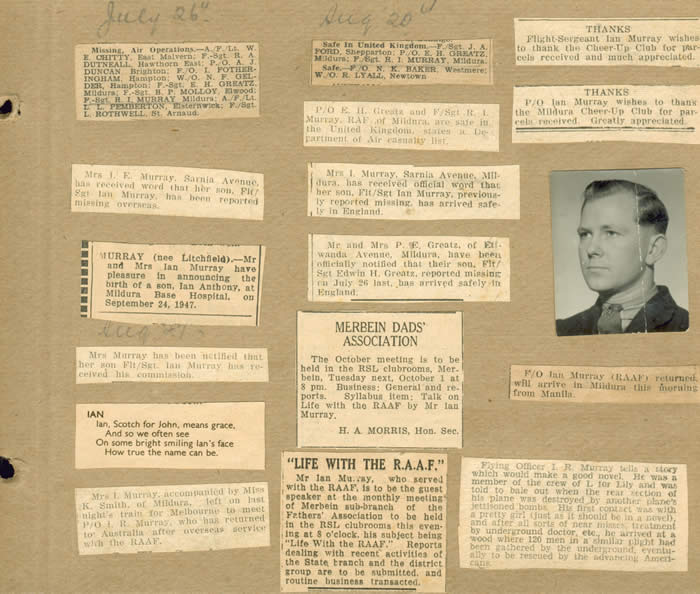 July 26"
Missing, Air Operations.—A./F./Lt. W.
E. CHITTY, East Malvern; F.-Sgt. R. A.
DUTNEALL, Hawthorn East; P.-O. A. J.
DUNCAN, Brighton; F./O. I. FOTHER-
INGHAM, Hampton; W./O. N. F. GEL-
DER, Hampton; F.-Sgt. E. H. GREATZ,
Mildura; F.-Sgt. B. P. MOLLOY, Elwood;
F.-Sgt. R. I. MURRAY, Mildura; A./F./Lt.
L. L. PEMBERTON, Elsternwick; F./Sgt.
L. ROTHWELL, St. Arnaud.
Mrs I. E. Murray, Sarnia Avenue,
has received word that her son, Flt/
Sgt Ian Murray, has been reported
missing overseas.
MURRAY (nee Litchfield).—Mr
and Mrs Ian Murray have
pleasure in announcing the
birth of a son, Ian Anthony, at
Mildura Base Hospital, on
September 24, 1947.
Aug
Mrs Murray has been notified that
her son Flt/Sgt. Ian Murray has re-
ceived his commission.
IAN
Ian, Scotch for John, means grace,
And so we often see
On some bright smiling Ian's face
How true the name can be.
Mrs I. Murray, accompanied by Miss
K. Smith, of Mildura, left on last
night's train for Melbourne to meet
P/O I. R. Murray, who has returned
to Australia after overseas service
with the RAAF.
Aug 20"
Safe In United Kingdom.—F./Sgt. J. A.
FORD, Shepparton; P./O. E. H. GREATZ,
Mildura; F./Sgt. R. I. MURRAY, Mildura.
Safe.—F/O. N. K. BAKER, Westmere;
W./O. R. LYALL, Newtown
P/O E. H. Greatz and F/Sgt R. I.
Murray, RAF, of Mildura, are safe in
the United Kingdom, states a De-
partment of Air casualty list.
Mrs I. Murray, Sarnia Avenue, Mil-
dura, has received official word that
her son, Flt/Sgt Ian Murray, previous-
ly reported missing, has arrived safe-
ly in England.
Mr and Mrs P. E. Greatz, of Eti-
wanda Avenue, Mildura, have been
officially notified that their son, Flt/
Sgt Edwin H. Greatz, reported missing
on July 26 last, has arrived safely in
England.
MERBEIN DADS'
ASSOCIATION
The October meeting is to be
held in the RSL clubrooms, Mer-
bein, Tuesday next, October 1 at
8 pm. Business: General and re-
ports. Syllabus item: Talk on
Life with the RAAF by Mr Ian
Murray.
H. A. MORRIS, Hon. Sec.
"LIFE WITH THE R.A.A.F."
Mr Ian Murray, who served
with the RAAF, is to be the guest
speaker at the monthly meeting
of Merbein sub-branch of the
Fathers' Association to be held
in the RSL clubrooms this even-
ing at 8 o'clock, his subject being
"Life With the RAAF." Reports
dealing with recent activities of
the State branch and the district
group are to be submitted, and
routine business transacted.
THANKS
Flight-Sergeant Ian Murray wishes
to thank the Cheer-Up Club for par-
cels received and much appreciated.
THANKS
P/O Ian Murray wishes to thank
the Mildura Cheer-Up Club for par-
cels received. Greatly appreciated.
F/O Ian Murray (RAAF) returned,
will arrive in Mildura this morning
from Manila.
Flying Officer I. R. Murray tells a story
which would make a good novel. He was a
member of the crew of L for Lily and was
told to bale out when the rear section of
his plane was destroyed by another plane's
jettisoned bombs. His first contact was with
a pretty girl (just as it should be in a novel),
and after all sorts of near misses, treatment
by underground doctor, etc., he arrived at a
wood where 120 men in a similar plight had
been gathered by the underground, eventu-
ally to be rescued by the advancing Ameri-
cans.